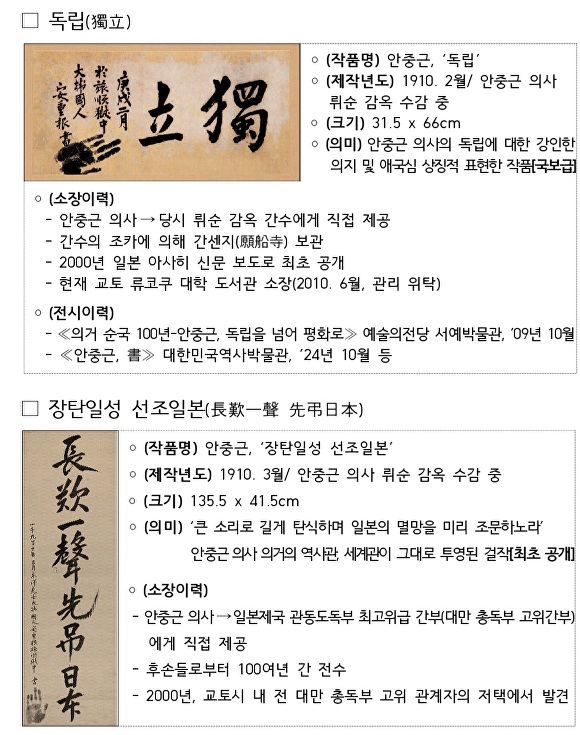 □ 독립(獨立)
獨立
庚戌二月
於旅順獄中
大韓國人
安重根 書
○ (작품명) 안중근, ‘독립’
○ (제작년도) 1910. 2월/ 안중근 의사
뤼순 감옥 수감 중
○ (크기) 31.5 x 66cm
○ (의미) 안중근 의사의 독립에 대한 강인한
의지 및 애국심 상징적 표현한 작품[국보급]
○ (소장이력)
- 안중근 의사→당시 뤼순 감옥 간수에게 직접 제공
- 간수의 조카에 의해 간센지(願船寺) 보관
- 2000년 일본 아사히 신문 보도로 최초 공개
- 현재 교토 류코쿠 대학 도서관 소장(2010. 6월, 관리 위탁)
○ (전시이력)
- ≪의거 순국 100년-안중근, 독립을 넘어 평화로≫ 예술의전당 서예박물관, ’09년 10월
- ≪안중근, 書≫ 대한민국역사박물관, ’24년 10월 등
□ 장탄일성 선조일본(長歎一聲 先弔日本)
長歎一聲先吊日本
○ (작품명) 안중근, ‘장탄일성 선조일본’
○ (제작년도) 1910. 3월/ 안중근 의사 뤼순 감옥 수감 중
○ (크기) 135.5 x 41.5cm
○ (의미) ‘큰 소리로 길게 탄식하며 일본의 멸망을 미리 조문하노라’
안중근 의사 의거의 역사관, 세계관이 그대로 투영된 걸작[최초 공개]
○ (소장이력)
- 안중근 의사→일본제국 관동도독부 최고위급 간부(대만 총독부 고위간부)
에게 직접 제공
- 후손들로부터 100여년 간 전수
- 2000년, 교토시 내 전 대만 총독부 고위 관계자의 저택에서 발견